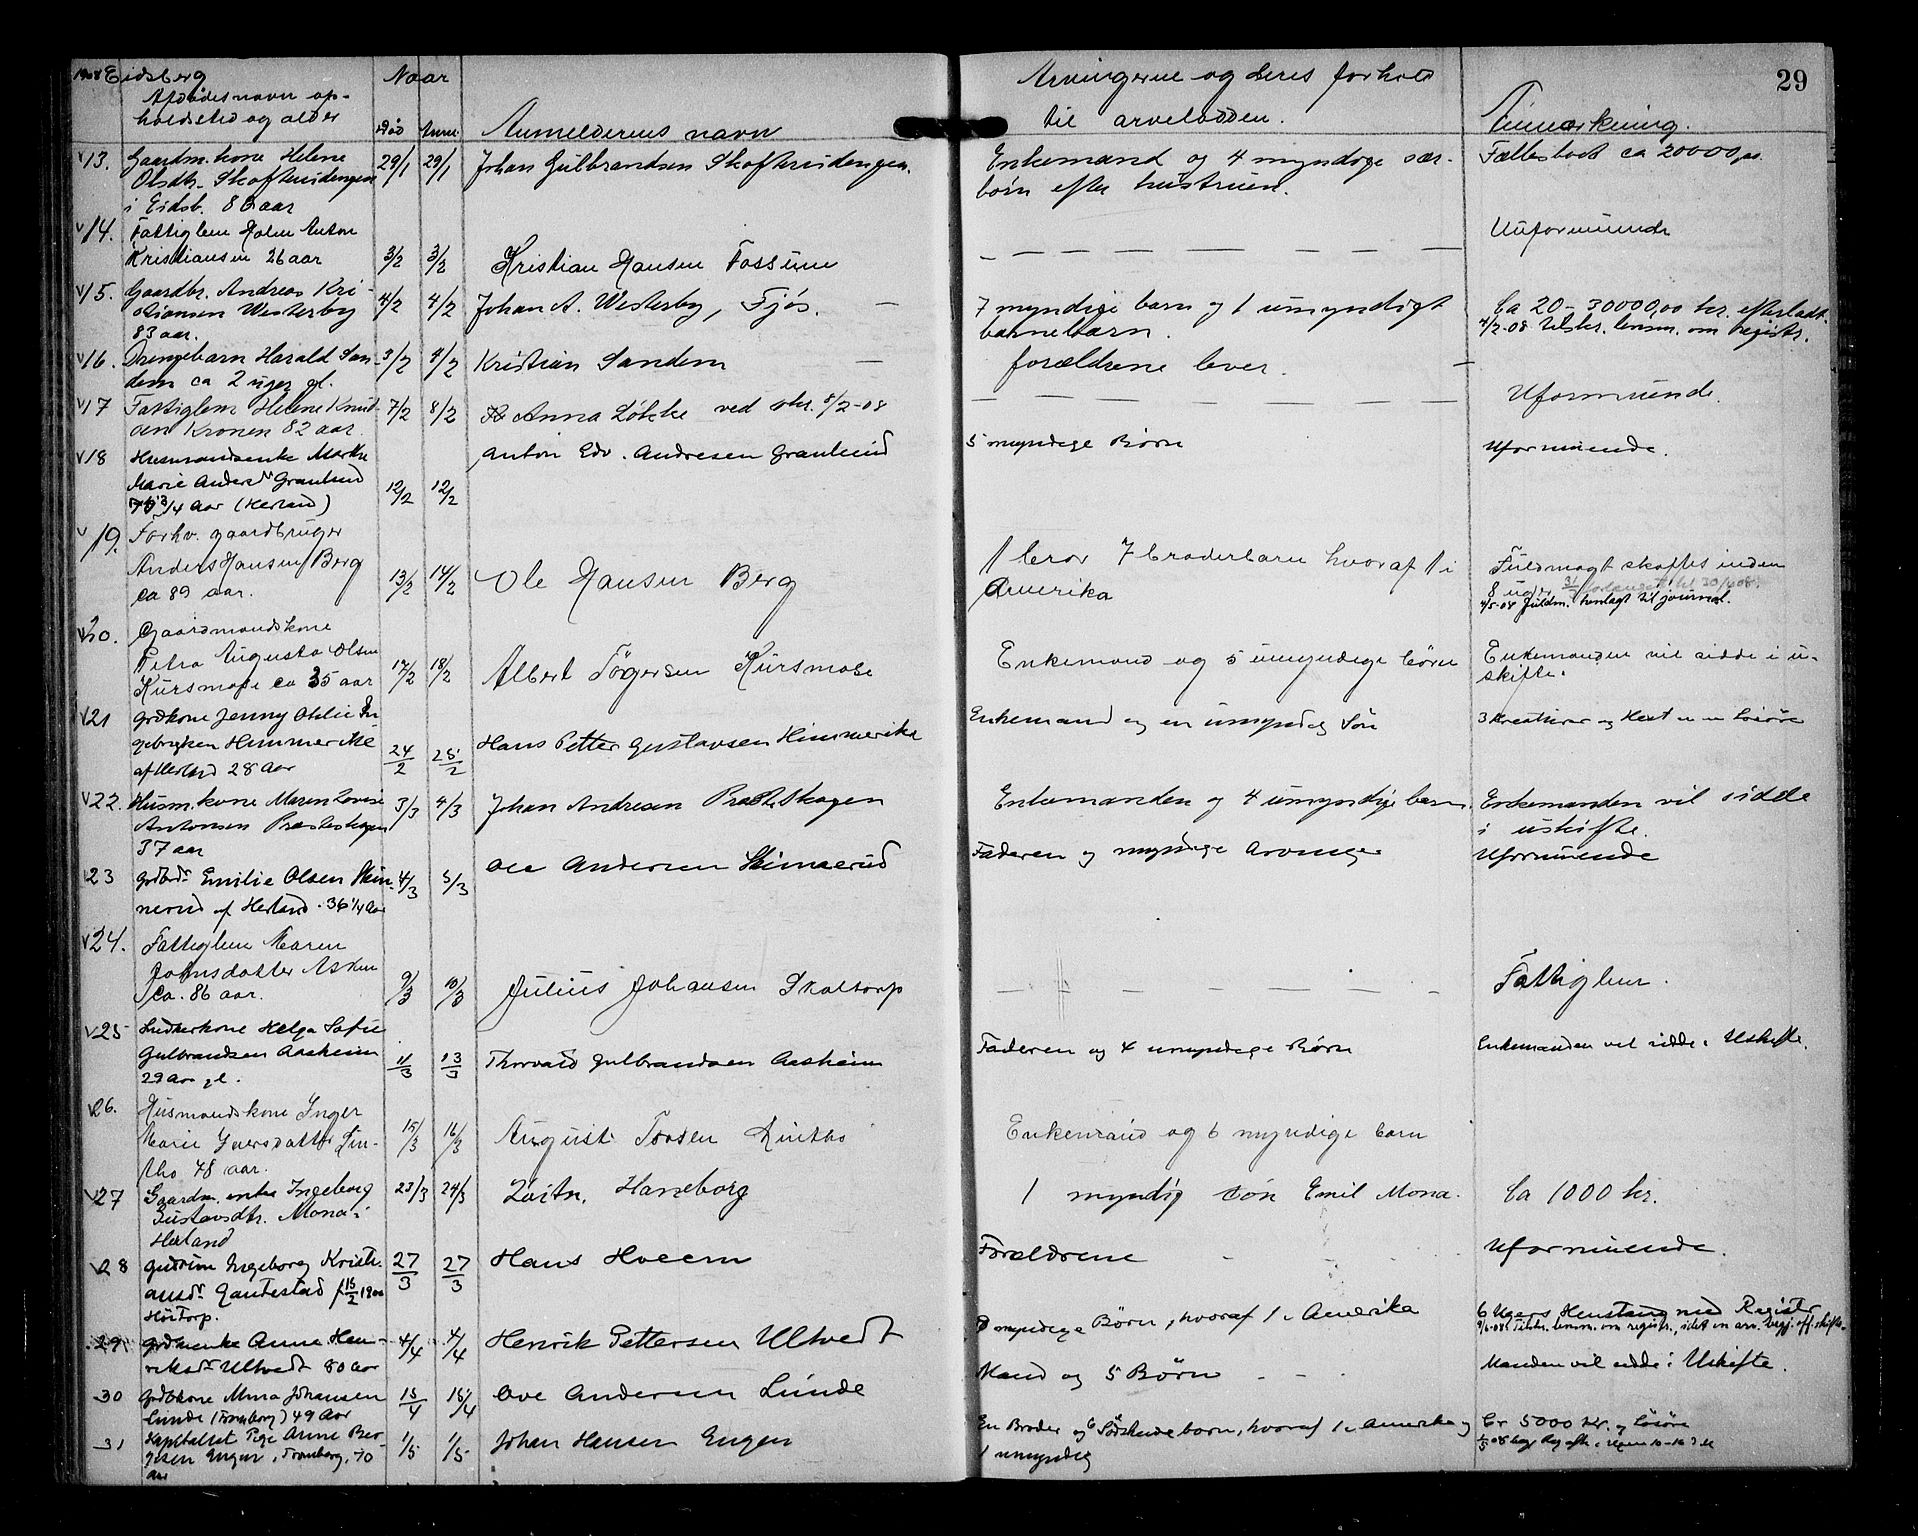 1908 Eidsberg
Afdødes navn op-
holdssted og alder
Naar
Død Anm.
Anmelderens navn
Arvingerne og deres forhold
til arveladeren.
Anmærkning.
29
13. Gaardm. kone Helene
Olsdtr. Skofterudengen
i Eidsb. 86 aar
29/1 29/1 Johan Gulbrandsen Skofterudengen.
Enkemand og 4 myndige sær-
børn efter hustruen.
Fællesboet ca 20000,00.
14. Fattiglem Holm Anton
Kristiansen 26 aar
3/2 3/2 Kristian Hansen Fossum
Uformuende
15. Gaardbr. Andreas Kri-
stiansen Westerby
83 aar.
4/2 4/2 Johan A. Westerby, Fjøs. —
7 myndige barn og 1 umyndigt
barnebarn.
Ca 20-30000,00 kr. efterladt.
4/2-08 tilskr. lensm. om registr.
16. Drengebarn Harald San-
dem ca 2 uger gl.
3/2 4/2 Kristian Sandem —
forældrene lever. —
17 Fattiglem Helene Knud-
sen Kronen 82 aar.
7/2 8/2 Anna Løkke ved skr. 8/2-08
Uformuende.
18 Husmandsenke Marthe
Marie Andersdr Granlund
3/4 Aar (Herland)
12/2 12/2
Anton Edv. Andresen Granlund
5 myndige Børn
Uformuende.
19. Forhv. gaardbruger
Anders Hansen Berg
ca 89 aar.
13/2 14/2 Ole Hansen Berg
1 bror 7 broderbarn hvoraf 1 i
Amerika
Fuldmagt skaffes inden
8 uger
4/5-08 Fuldm. henlagt til journal.
20. Gaardmandskone
Petra Augusta Olsen
Kursmose ca 35 aar
17/2 18/2 Albert Tøgersen Kursmose
Enkemand og 5 umyndige børn
Enkemanden vil sidde i u-
skifte.
21 Grdkone Jenny Othlie In
gebrigtsen Hemmerike
af Herland 28 Aar
24/2 25/2 Hans Petter Gustavsen Himmerike
Enkemand og en umyndig Søn
3 Kreaturer og Hest og en Løsøre
22. Husm. kone Maren Lovise
Antonsen Presteskogen
37 aar
3/3 4/3 Johan Andresen Præsteskogen
Enkemanden og 4 umyndige barn.
Enkemanden vil sidde
i uskifte.
23 Grdbdr Emilie Olsen Skin-
nerud af Herland. 36 1/4 Aar
4/3 5/3 Ole Andersen Skinnerud
Faderen og myndige Arvinger
Uformuende
24. Fattiglem Maren
Johnsdatter Asken
ca. 86 aar.
9/3 10/3 Julius Johansen Skaltorp
Fattiglem.
25 Snedkerkone Helga Sofie
Gulbrandsen Aasheim
29 Aar gl.
11/3 13/3 Thorvald Gulbrandsen Aasheim
Faderen og 4 umyndige Børn
Enkemanden vil sidde i Uskifte.
26. Husmandskone Inger
Marie Iversdatter Lin-
tho 48 aar.
15/3 16/3 August Torsen Lintho
Enkemand og 6 myndige barn
27 Gaardm. enke Ingeborg
Gustavsdtr. Mona i
Herland
23/3 24/3 Løitn. Haneborg
1 myndig søn Emil Mona.
Ca 1000 kr.
28 Gudrun Ingeborg Kristi-
ansdr Gandestad f 15/2 1900
Hørtorp.
27/3 27/3 Hans Hveem
Forældrene
Uformuende.
29 Grdmenke Anne Hen-
riksdr Ultvedt 80 Aar
4/4 4/4 Henrik Pettersen Ultvedt
myndige Børn, hvoraf 1 i Amerika
6 Ugers Henstand med Registr
9/6-08 Tilskr. lensm. om registr., idet en arv. begj. off. skifte.
30 Grdkone Mina Johansen
Lunde (Tromborg) 49 Aar
15/4 15/4 Ove Andersen Lunde
Mand og 5 Børn
Manden vil sidde i Uskifte.
31 Kapitalist Pige Anne Bre-
gesen Engen, Tromborg, 70
Aar
1/5 1/5 Johan Hansen Engen
En Broder og 6 Søskendebarn, hvoraf 1 i Amerika og
1 umyndig
Ca 5000 Kr. og Løsøre